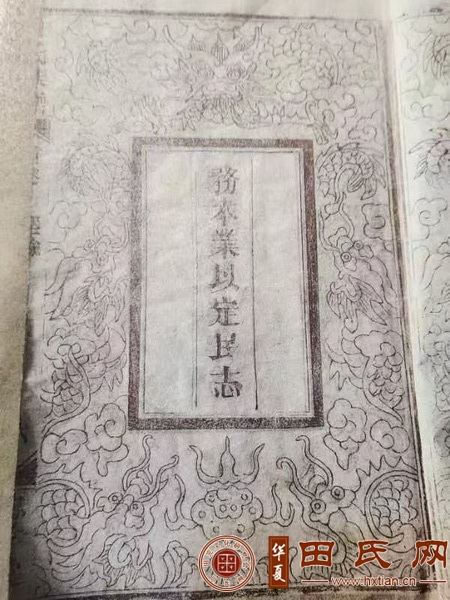 務本業以定民志
华夏
田氏网
www.hxtian.cn